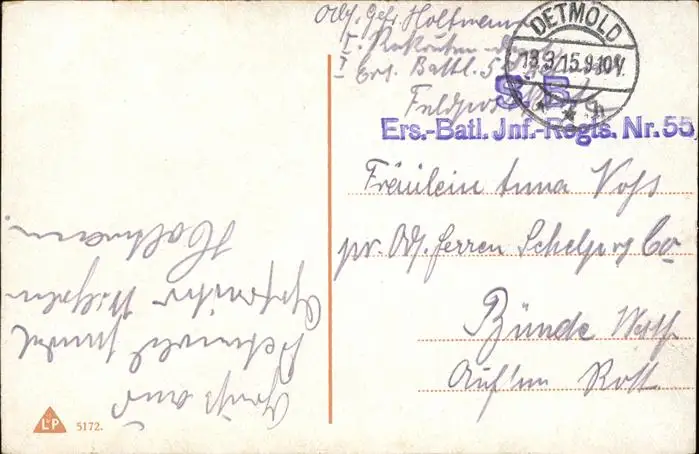 Abs. Gefr. Holtmann
I. Rekruten
I Ers. Battl. 55
Feldpost
DETMOLD
13.9.15.9-10V.
S. B.
Ers.-Batl. Jnf.-Regts. Nr. 55
Fräulein Anna Voss
pr. Adr. Herren Schelp og Co
Bünde Westf.
Auf'm Rott.
Gruß aus
Detmold sendet
Wilhelm
Holtmann.
L&P
5172.